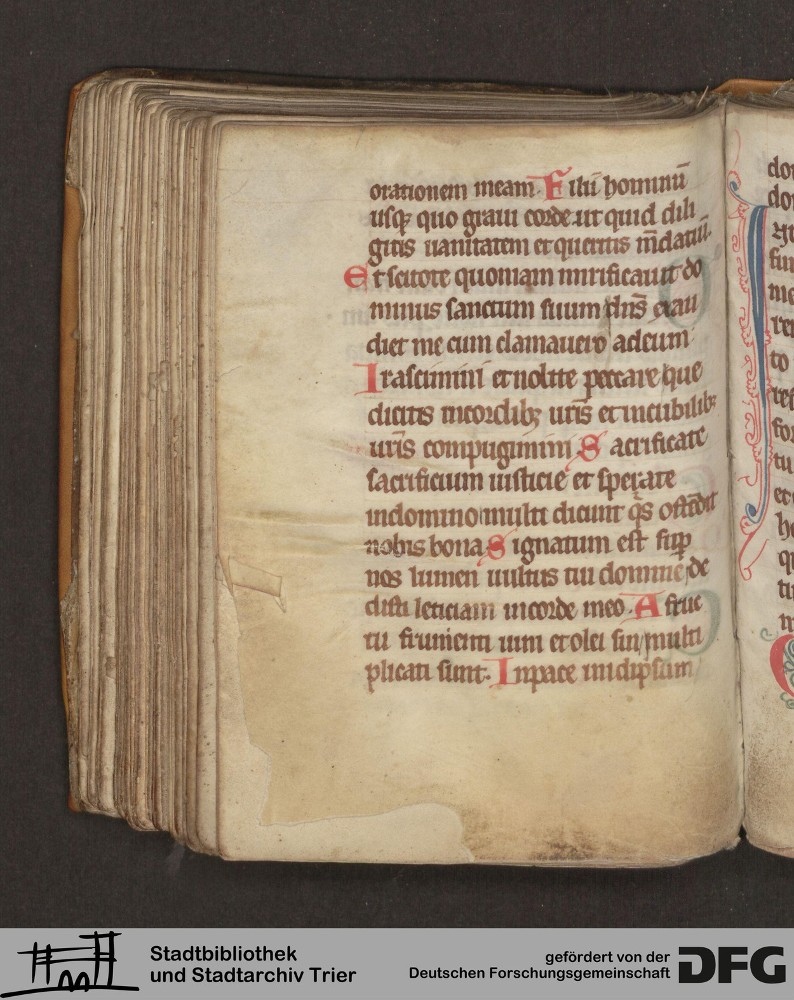 orationem meam. Filii hominū
usq; quo graui corde. ut quid dili
gitis uanitatem et queritis mdatiū.
Et scitote quoniam mirificauit do
minus sanctum suum dn̄s exau
diet me cum clamauero ad eum
Irascimini et nolite peccare que
dicitis incordib; uris et incubilib;
uris compugimini Sacrificate
sacrificium iusticie et sperate
indomino multi dicunt qs ostēdit
nobis bona Signatum est sup
nos lumen uultus tui domine de
disti leticiam incorde meo. A fruc
tu frumenti uini et olei sui multi
plicati sunt. Inpace inidipsum
Stadtbibliothek
und Stadtarchiv Trier
gefördert von der
Deutschen Forschungsgemeinschaft
DFG